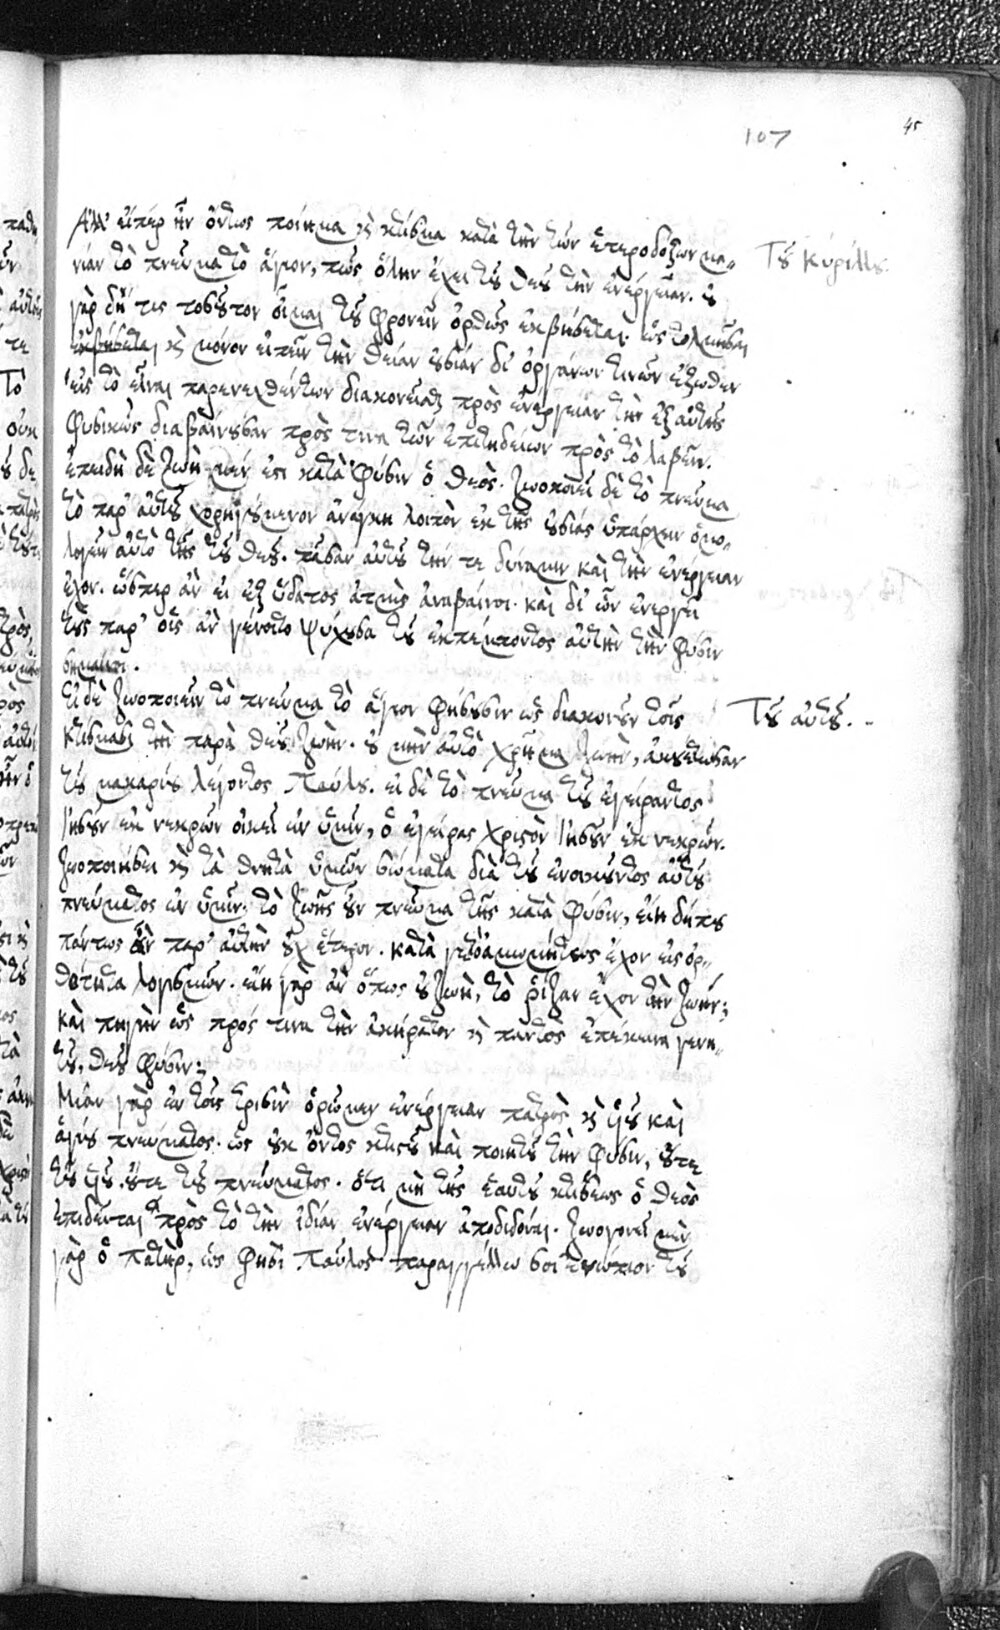 107
45
Ἀλλ' εἴπερ ἦν ὄντως ποίημα καὶ κτίσμα κατὰ τὴν τῶν ἑτεροδόξων μα-
Τοῦ Κυρίλλου.
νίαν τὸ πνεῦμα τὸ ἅγιον, πῶς ὅλην ἔχει τοῦ θεοῦ τὴν ἐνέργειαν. οὐ
γὰρ δή τις τοσοῦτον οἶμαι τοῦ φρονεῖν ὀρθῶς ἐκβήσεται, ὡς τολμῆσαι
ἐκβήσεται καὶ μόνον εἰπεῖν τὴν θείαν οὐσίαν δι' ὀργάνων τινῶν ἔξωθεν
εἰς τὸ εἶναι παρενεχθέντων διακονεῖσθαι πρὸς ἐνέργειαν τὴν ἐξ αὐτῆς
φυσικῶς διαβαίνουσαν πρός τινα τῶν ἐπιτηδείων πρὸς τὸ λαβεῖν.
ἐπειδὴ δὲ ζωὴ μέν ἐστι κατὰ φύσιν ὁ θεὸς. ζωοποιεῖ δὲ τὸ πνεῦμα
τὸ παρ' αὐτοῦ χορηγούμενον ἀνάγκη λοιπὸν ἐκ τῆς οὐσίας ὑπάρχειν ὁμο-
λογεῖν αὐτὸ τῆς τοῦ θεοῦ. πᾶσαν αὐτοῦ τήν τε δύναμιν καὶ τὴν ἐνέργειαν
ἔχον. ὥσπερ ἂν εἰ ἐξ ὕδατος ἀτμὶς ἀναβαίνοι. καὶ δι' ὧν ἐνεργεῖ
τοῖς παρ' οἷς ἂν γένοιτο ψύχουσα τοῦ ἐκπέμποντος αὐτὴν τὴν φύσιν
σημαίνει.
Εἰ δὲ ζωοποιεῖν τὸ πνεῦμα τὸ ἅγιον φήσουσιν ὡς διακονοῦν τοῖς
Τοῦ αὐτοῦ.
κτίσμασι τὴν παρὰ θεοῦ ζωήν. οὐ μὴν αὐτὸ χρῆμα ζωήν, ἀκουέτωσαν
τοῦ μακαρίου λέγοντος Παύλου. εἰ δὲ τὸ πνεῦμα τοῦ ἐγείραντος
Ἰησοῦν ἐκ νεκρῶν οἰκεῖ ἐν ὑμῖν, ὁ ἐγείρας Χριστὸν Ἰησοῦν ἐκ νεκρῶν.
ζωοποιήσει καὶ τὰ θνητὰ ὑμῶν σώματα διὰ τοῦ ἐνοικοῦντος αὐτοῦ
πνεύματος ἐν ὑμῖν. τὸ ζωῆς οὖν πνεῦμα τῆς κατὰ φύσιν, εἴη δήπου
πάντως ἂν παρ' αὐτὴν οὐχ ἕτερον. κατά γε τὸ ἀμωμήτως ἔχον εἰς ὀρ-
θότητα λογισμῶν. εἴη γὰρ ἂν ὅπως οὐ ζωὴ, τὸ ῥίζαν ἔχον τὴν ζωήν;
καὶ πηγὴν ὥς πρός τινα τὴν ἀκήρατον καὶ παντὸς ἐπέκεινα γενη-
τοῦ, θεοῦ φύσιν;
Μίαν γὰρ ἐν τοῖς τρισὶν ὁρῶμεν ἐνέργειαν πατρὸς καὶ υἱοῦ καὶ
ἁγίου πνεύματος. ὡς οὐκ ὄντος κτιστοῦ καὶ ποιητοῦ τὴν φύσιν, οὔτε
τοῦ υἱοῦ. οὔτε τοῦ πνεύματος. ὅτι μὴ τῆς ἑαυτοῦ κτίσεως ὁ θεὸς
ἐπιδεῖται πρὸς τὸ τὴν ἰδίαν ἐνέργειαν ἀποδιδόναι. ζωογονεῖ μὲν
γὰρ ὁ πατὴρ, ὥς φησὶ Παῦλος παραγγέλλω σοι ἐνώπιον τοῦ